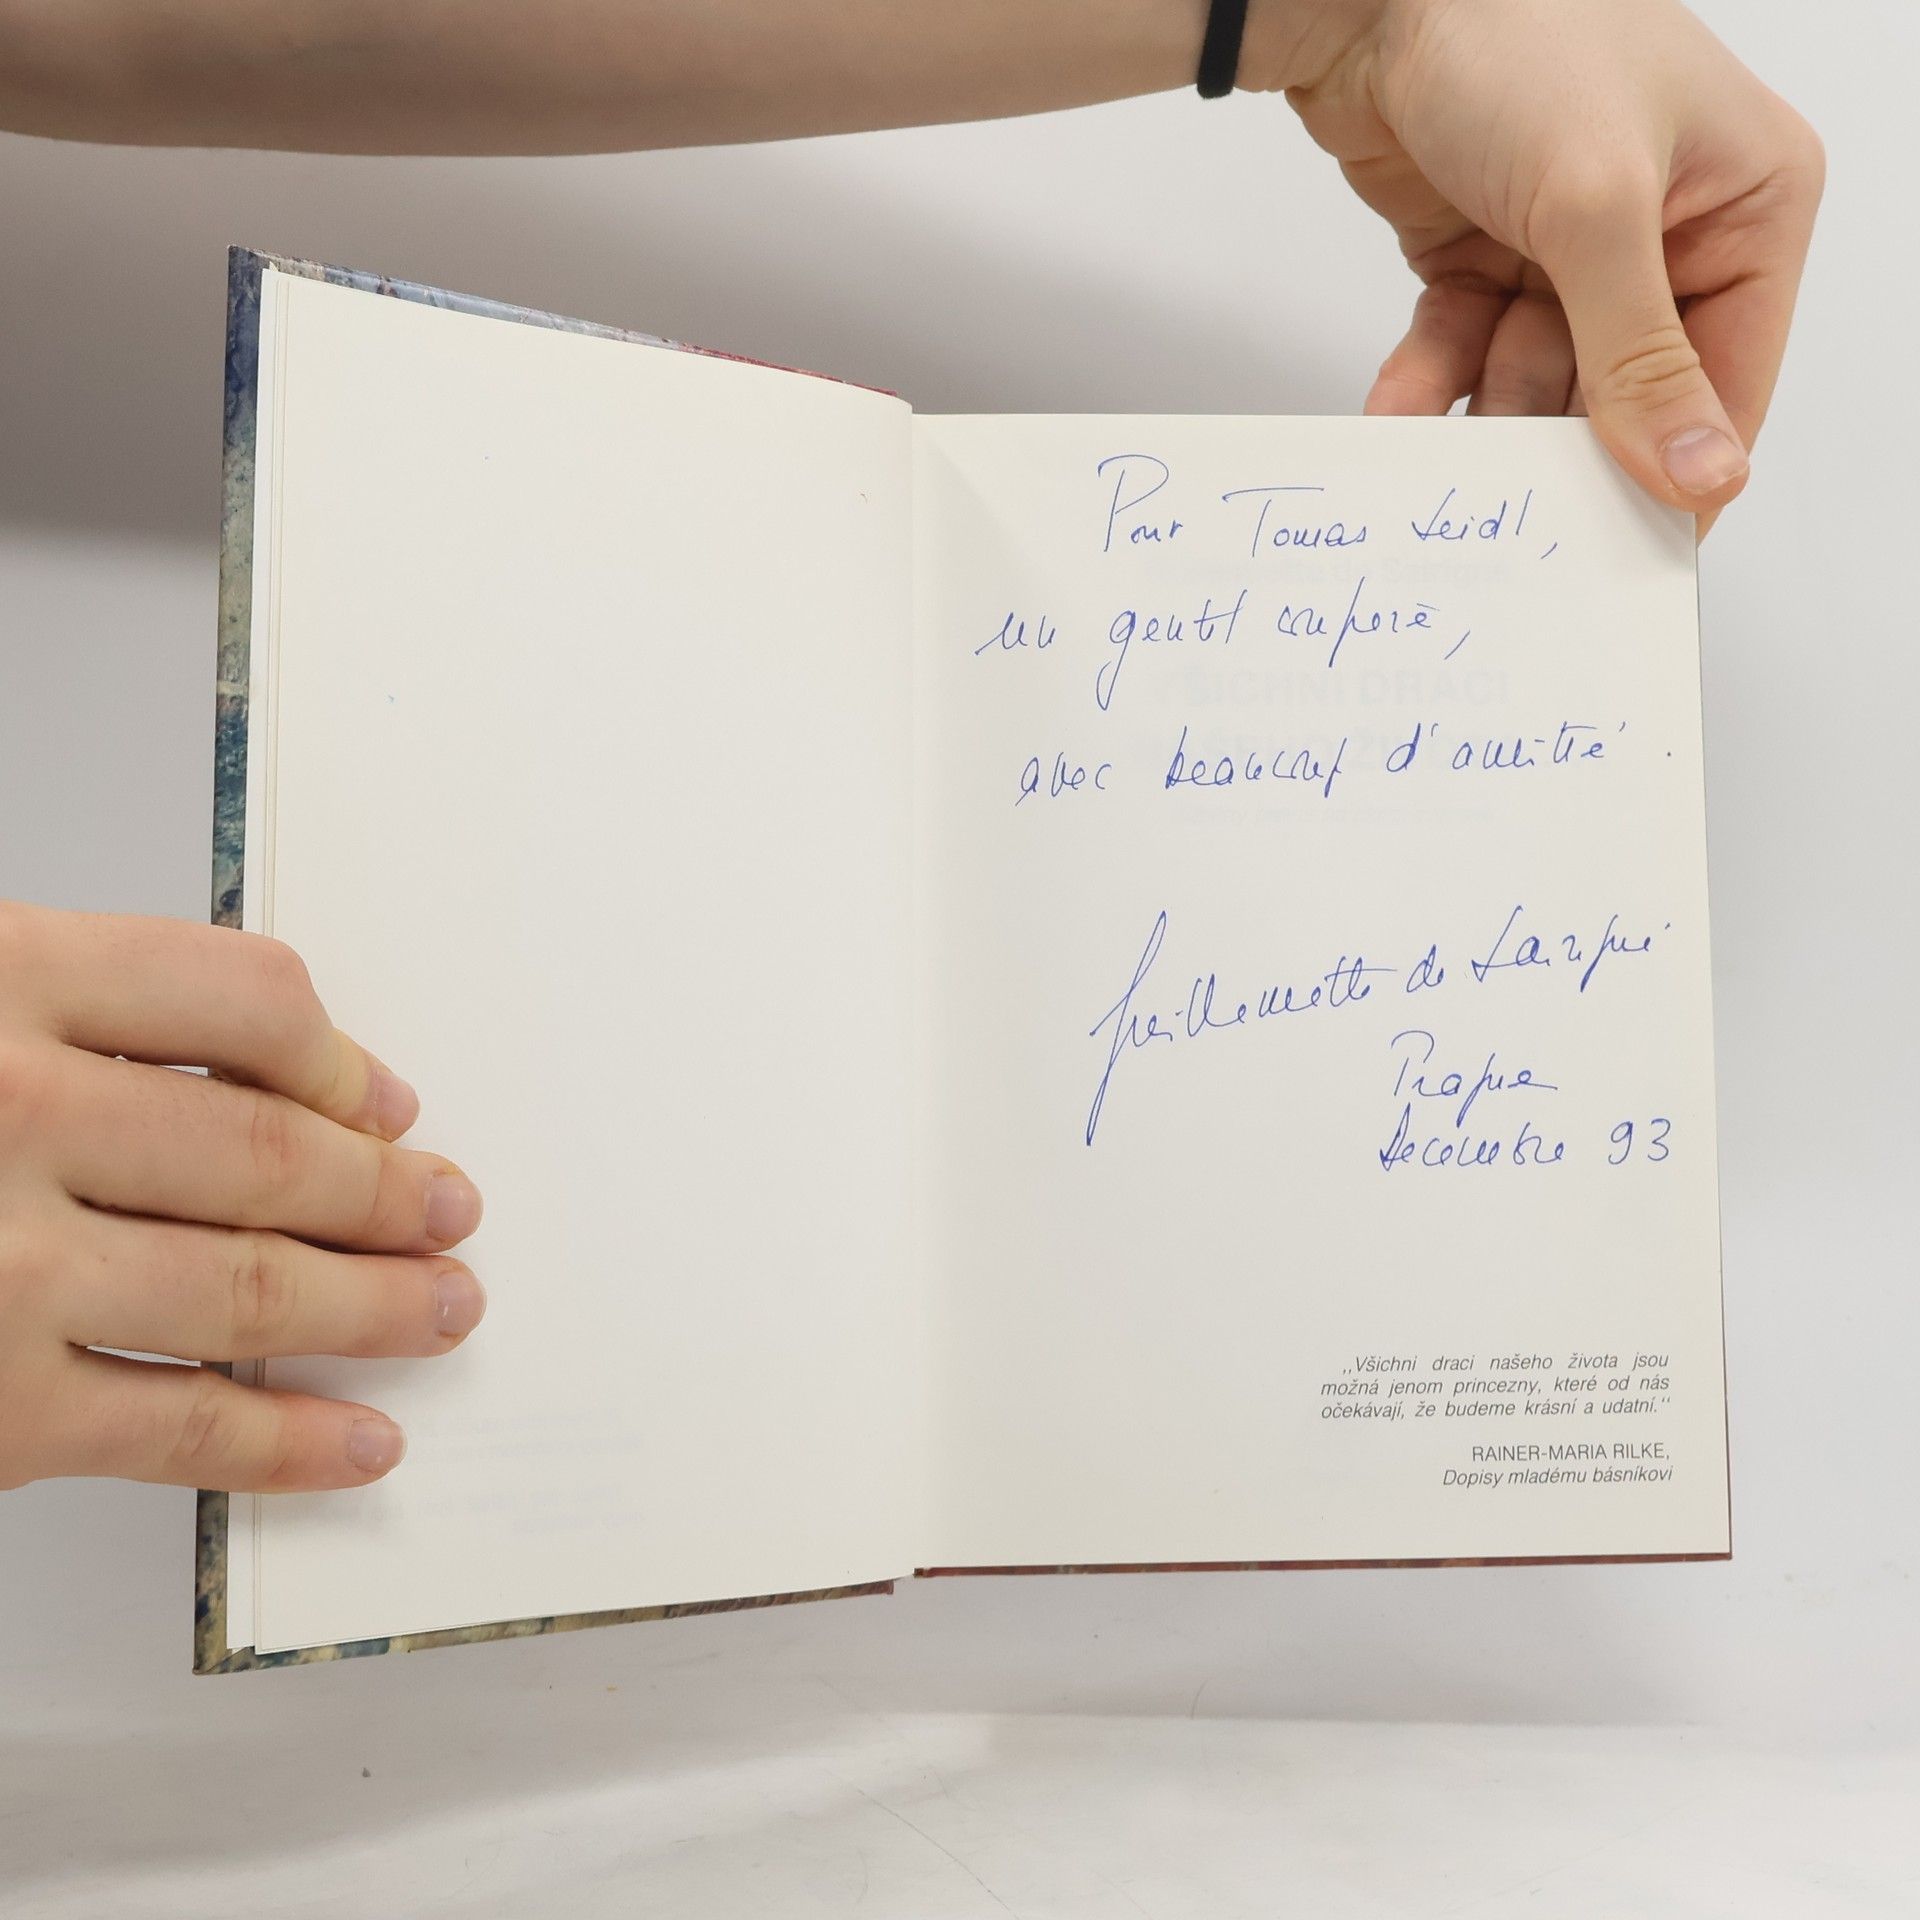 Pour Tomas Seidl,
un gentil confrère,
avec beaucoup d'amitié.
Guillemette de Sairigné
Prague
Decembre 93
„Všichni draci našeho života jsou
možná jenom princezny, které od nás
očekávají, že budeme krásní a udatní.“
RAINER-MARIA RILKE,
Dopisy mladému básníkovi